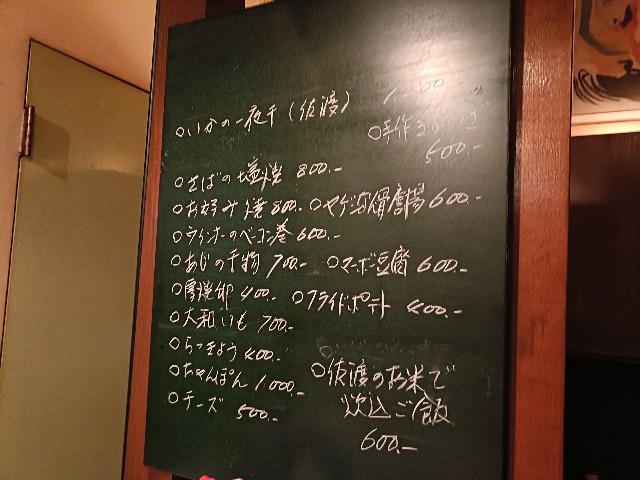 ○いかの一夜干(佐渡)
○手作り
500.-
○さばの塩焼 800.-
○お好み焼 800.- ○ヤゲン軟骨唐揚 600.-
○ウインナーのベーコン巻 600.-
○あじの干物 700.- ○マーボ豆腐 600.-
○厚焼卵 400.- ○フライドポテト 400.-
○大和いも 700.-
○らっきょう 400.-
○ちゃんぽん 1000.-
○チーズ 500.-
○佐渡のお米で
炊込ご飯
600.-